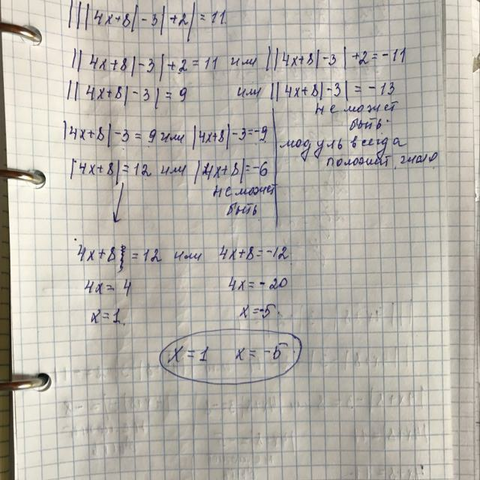 |||4x+8|-3|+2|=11.
||4x+8|-3|+2=11 или ||4x+8|-3|+2=-11
||4x+8|-3|=9 или ||4x+8|-3|=-13
не может
быть.
|4x+8|-3=9 или |4x+8|-3=-9
модуль всегда
положит.
|4x+8|=12 или |4x+8|=-6
не может
быть
4x+8=12 или 4x+8=-12
4x=4 4x=-20
x=1. x=-5.
x=1 x=-5